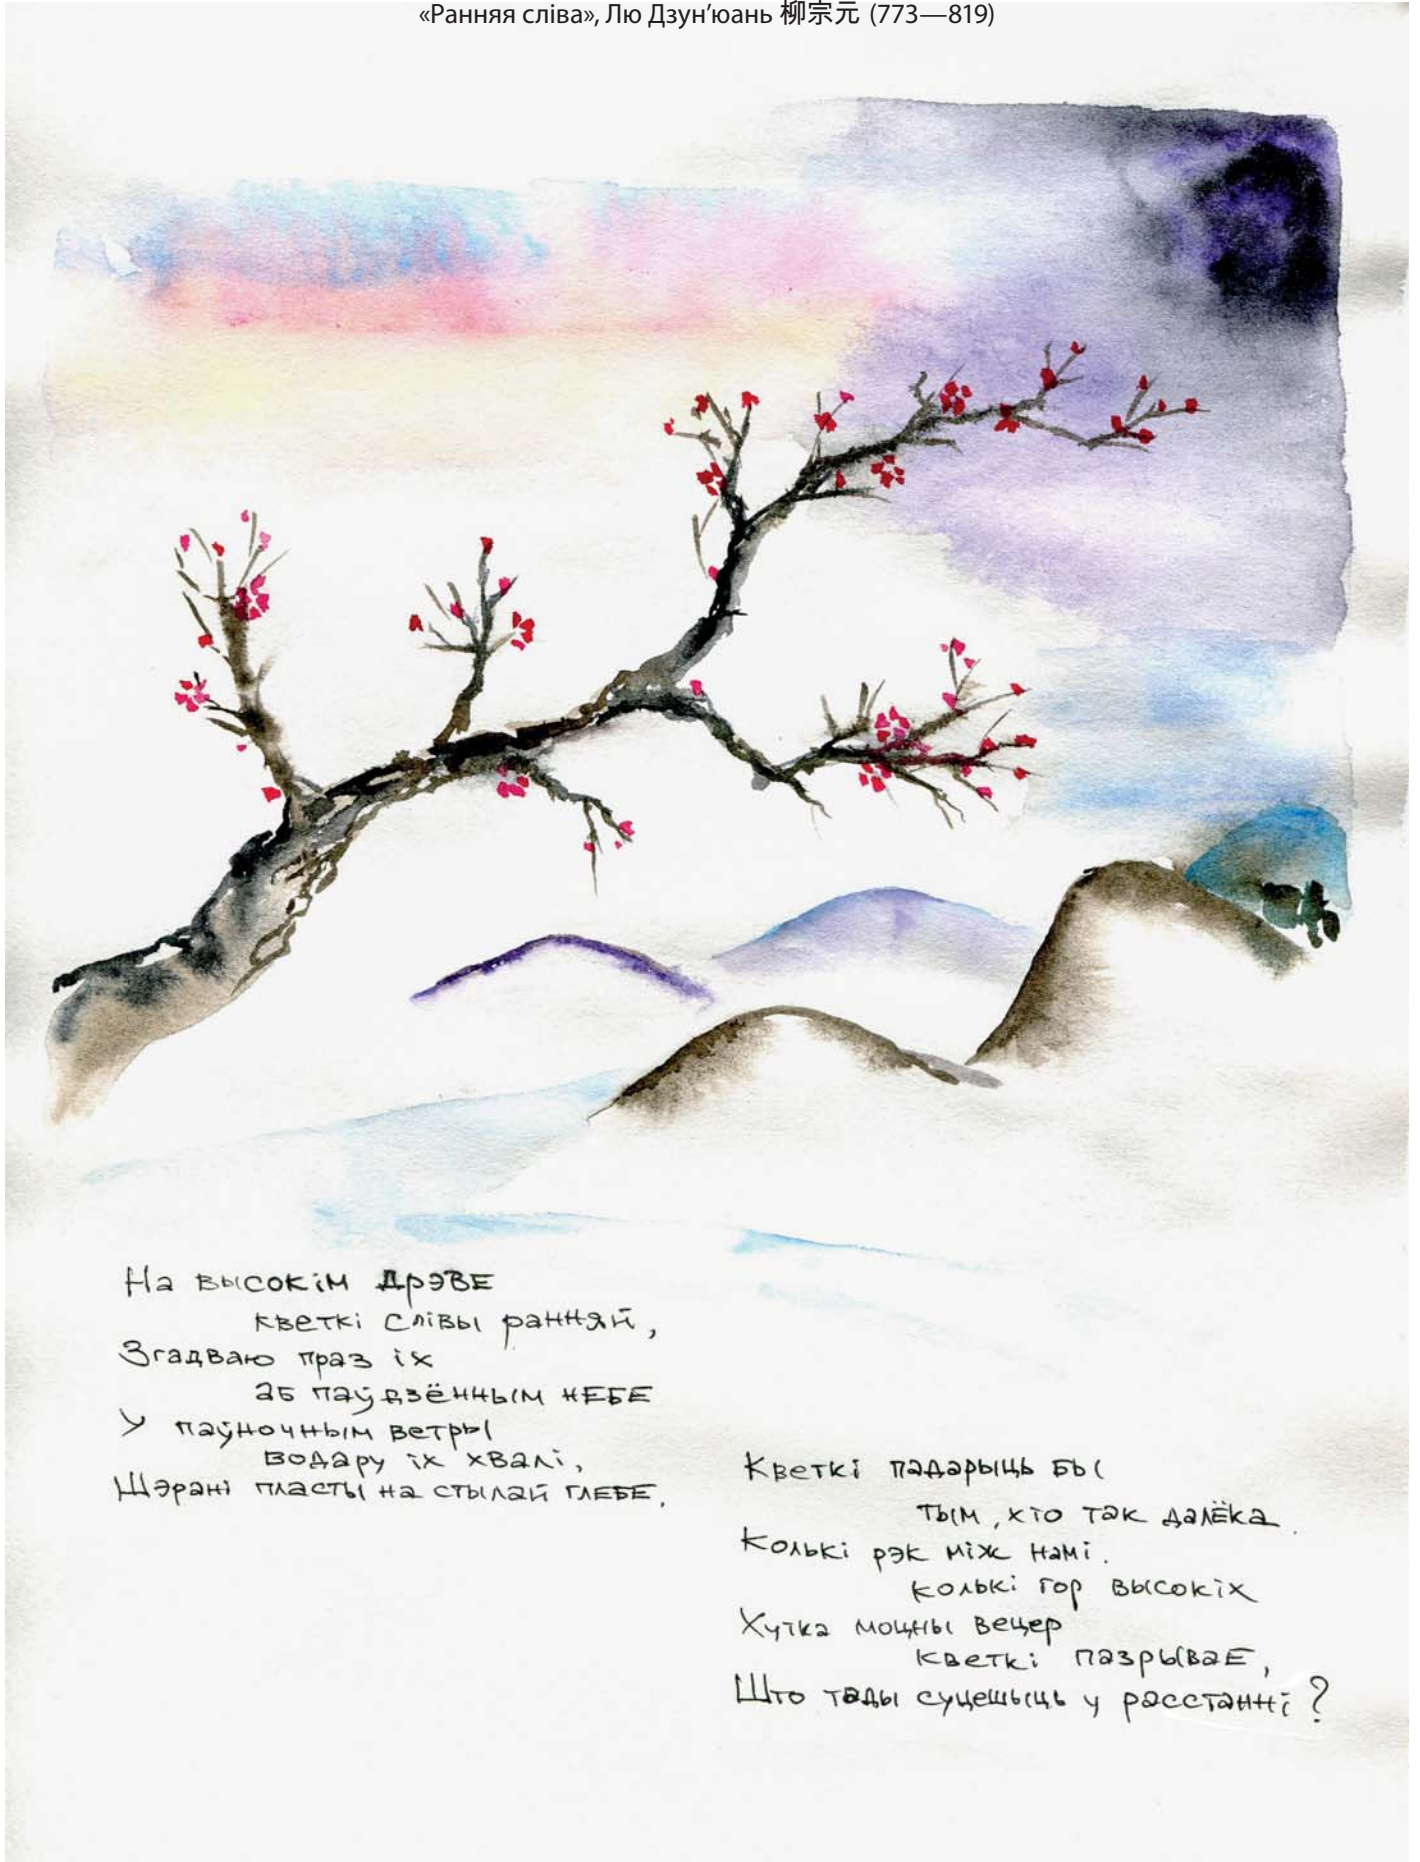 «Ранняя сліва», Лю Дзун’юань 柳宗元 (773—819)
На высокім дрэве
кветкі слівы ранняй,
Згадваю праз іх
аб паўдзённым небе
У паўночным ветры
водару іх хвалі,
Шэрані пласты на стылай глебе.
Кветкі падарыць бы
тым, хто так далёка.
Колькі рэк між намі.
колькі гор высокіх
Хутка моцны вецер
кветкі пазрывае,
Што тады суцешыць у расстанні?